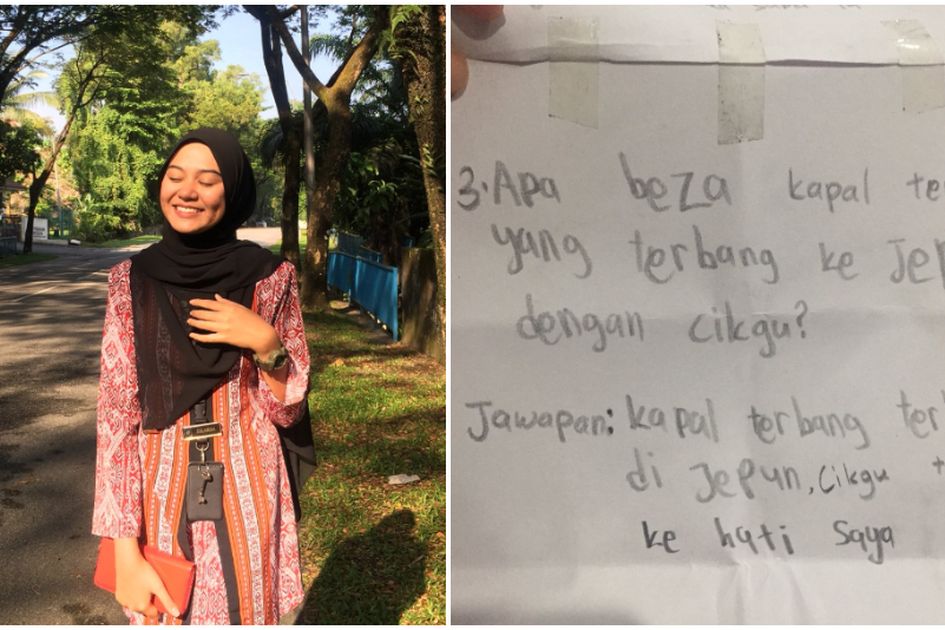 3. Apa beza kapal te
yang terbang ke Jep
dengan cikgu?
Jawapan: kapal terbang ter
di Jepun, Cikgu t
ke hati saya